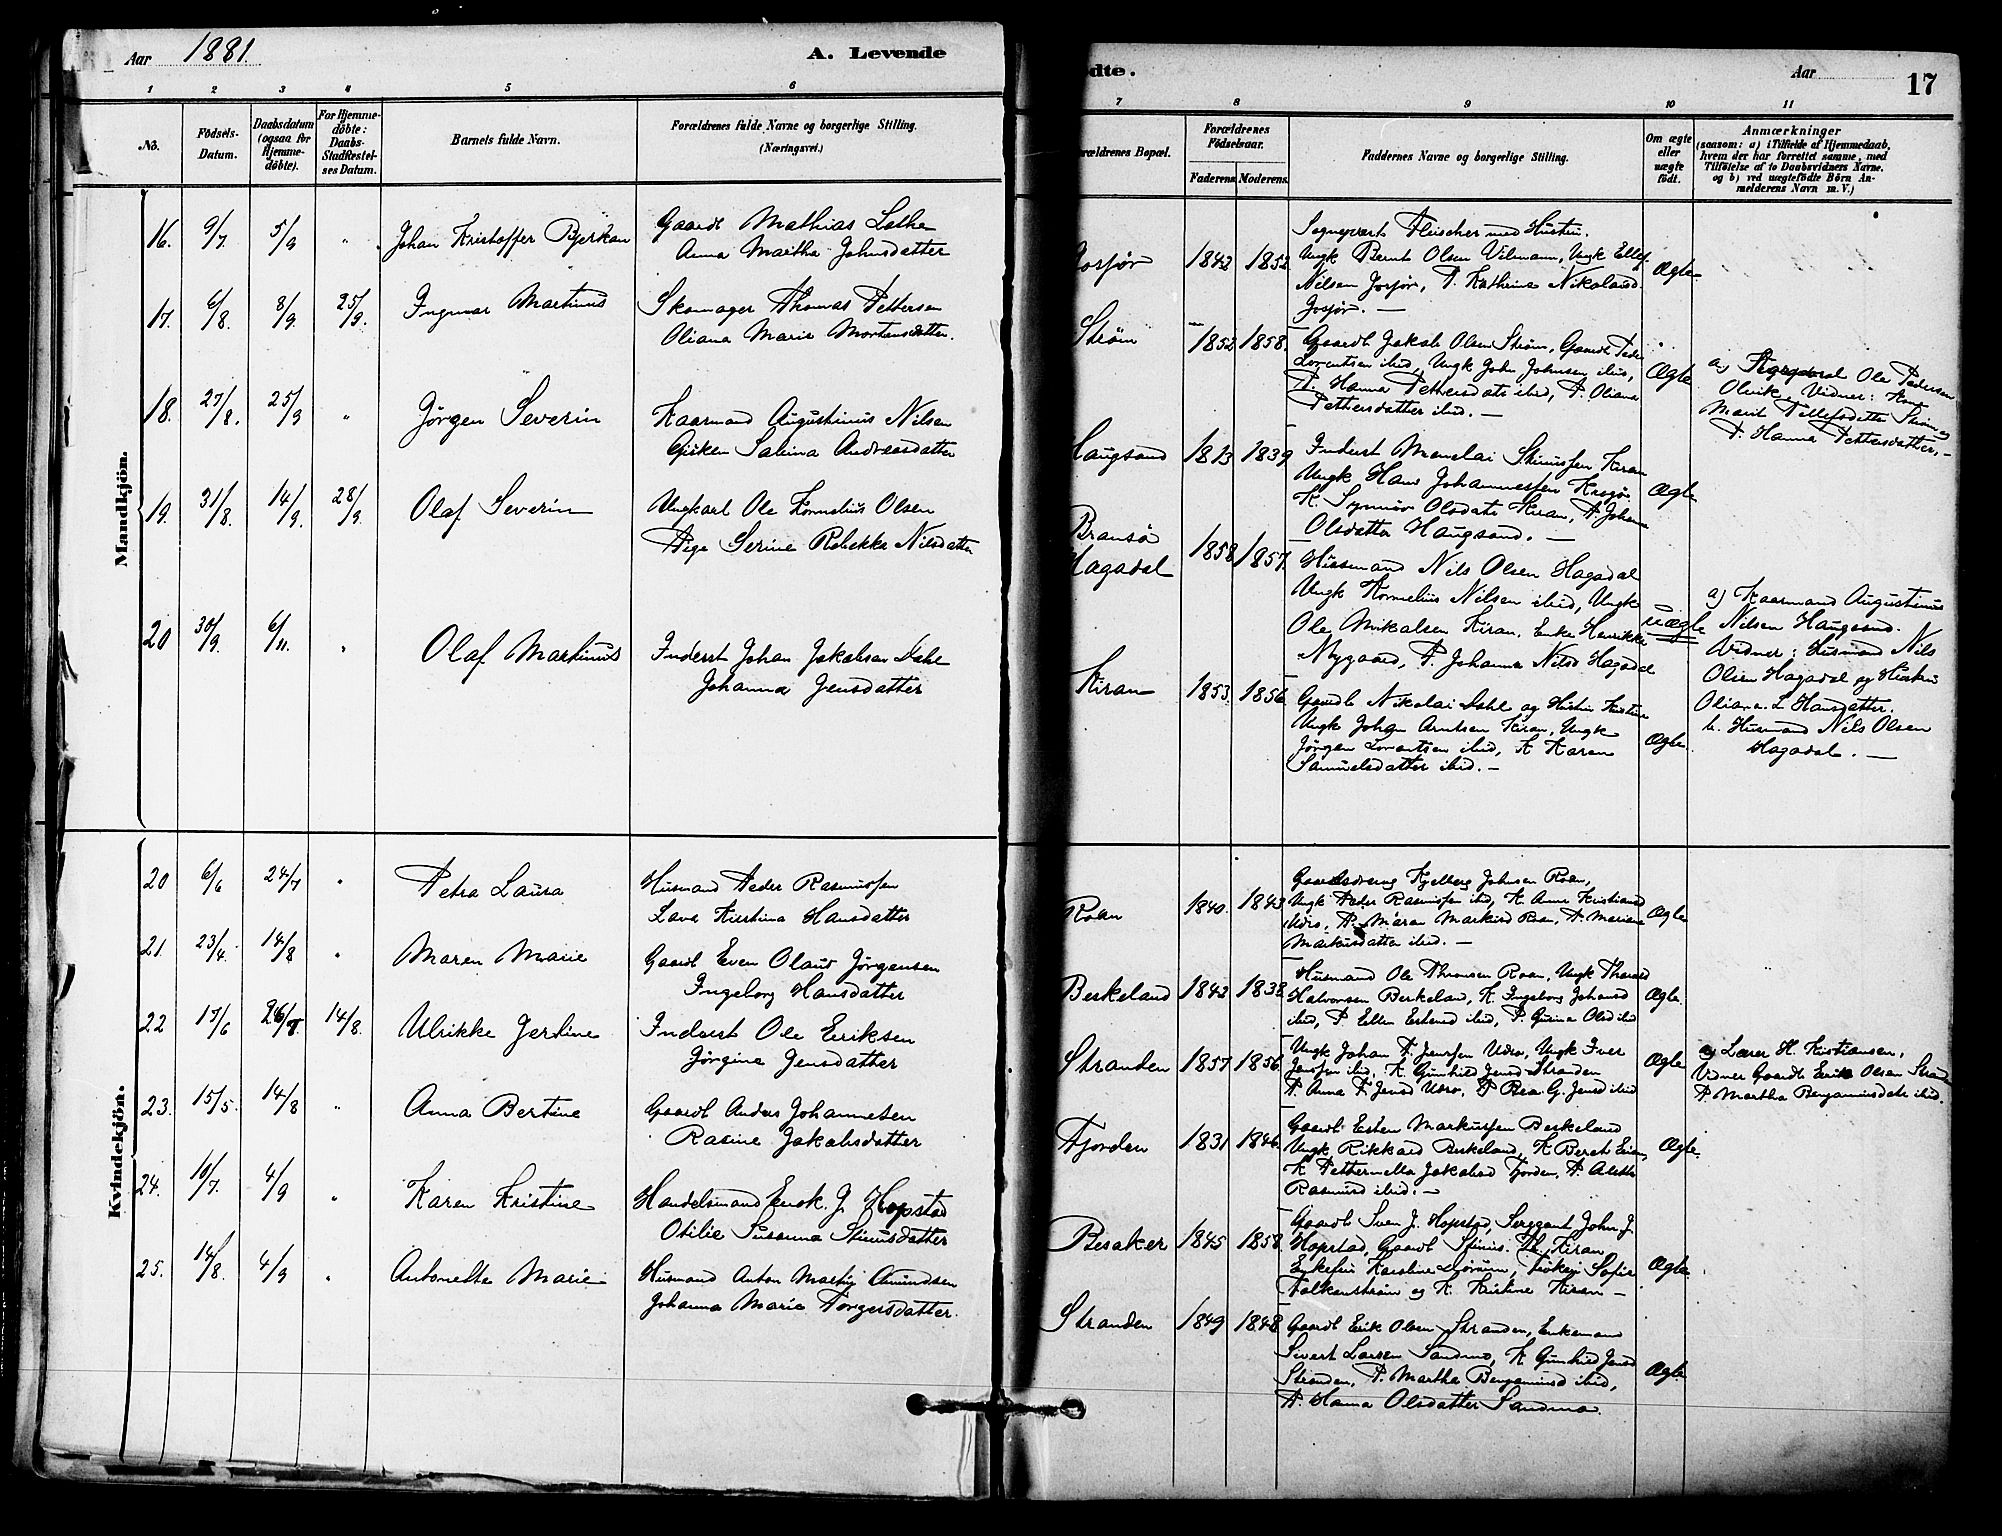 Aar 1881.
A. Levende
1 2 3 4 5 6
No.
Födsels-
Datum.
Daabsdatum
(ogsaa for
Hjemme-
döbte).
For Hjemme-
döbte:
Daabs-
Stadfæstel-
ses Datum.
Barnets fulde Navn.
Forældrenes fulde Navne og borgerlige Stilling.
(Næringsvei.)
Mandkjön.
16. 9/7 5/9 " Johan Kristoffer Bjerkan
Gaardb Mathias
Anna Martha Johnsdatter
17. 6/8. 8/9 25/9. Ingmar Martinus
Skomager Thomas Pettersen
Oliana Marie Mortensdatter.
18. 27/8. 25/9 " Jørgen Severin
Kaarmand Augustinus Nilsen
Gjøken Salina Andreasdatter
19. 31/8. 14/9. 28/9. Olaf Severin
Ungkarl Ole Kornelius Olsen
Pige Serine Rebekka Nilsdatter
20 30/9. 6/11. " Olaf Martinus
Inderst Johan Jakobsen Dahl
Johanna Jensdatter
Kvindekjön.
20 6/6 24/7 " Petra Laura
Husmand Peder Rasmussen
Lava Kirstina Hansdatter
21. 23/4. 14/8 " Maren Marie
Gaardb Even Olaus Jørgensen
Ingeborg Hansdatter
22 17/6 26/7. 14/8. Ulrikke Jertine
Inderst Ole Eriksen
Jørgine Jensdatter
23. 15/5. 14/8 " Anna Bertine
Gaardb Anders Johannesen
Rasine Jakobsdatter
24. 10/7. 4/9 " Karen Kristine
Handelsmand Enok. J. Hopstad
Otilie Susanna Stinusdatter
25. 14/8. 4/9 " Antonette Marie
Husmand Anton Martin Amundsen
Johanna Marie Torgersdatter.
ödte.
Aar
17
7 8 9 10 11
orældrenes Bopæl.
Forældrenes
Födselsaar.
Faderens. Moderens.
Faddernes Navne og borgerlige Stilling.
Om ægte
eller
uægte
födt.
Anmærkninger
(saasom: a) i Tilfælde af Hjemmedaab,
hvem der har forrettet samme, med
Tilföielse af to Daabsvidners Navne.
og b) ved uægtefödte Börn An-
melderens Navn m. V.)
Sognepræst Fleischer med Hustru.
Josjør 1842 1852 Ungk Bernt Olsen Vilmann, Ungk Ellef
Nilsen Josjør, P. Kathrine Nikolaisd
Josjør. — Ægte
Strøm 1852 1858. Gaardb Jakob Olsen Strøm, Gaardb Peder
Lorentsen ibid, Ungk John Johnsen ibid,
P. Hanna Pettersdatt ibid, P. Oliana
Pettersdatter ibid. — Ægte
a) Ole Pedersen
Olvik. Vidner: Kone
Marit Pettersdatter Strøm og
P. Hanna Pettersdatter. —
Haugsand 1813 1839 Inderst Manelai Stinussen Kiran
Ungk Hans Johannessen
K. Synnøv Olsdatt Kiran, P. Johan
Olsdatter Haugsand. — Ægte
Bransø
Hagadal 1858 1857. Husmand Nils Olsen Hagadal
Ungk Kornelius Nilsen ibid, Ungk
Ole Mikalsen Kiran. Enke Henrikke
Nygaard, P. Johanna Nilsd Hagadal
uægte
a) Kaarmand Augustinus
Nilsen Haugsand.
Vidner: Husmand Nils
Olsen Hagadal og Hustru
Oliana. L Hansdatter.
b. Husmand Nils Olsen
Hagadal. —
Kiran 1853. 1856. Gaardb Nikolai Dahl og Hustru Kristine
Ungk Johan Arntsen Kiran, Ungk
Jørgen Lorentsen ibid, K Karen
Samuelsdatter ibid. — Ægte.
Gaardsdreng Kjelberg Johnsen Roan,
Roan 1840. 1843 Ungk Peder Rasmussen ibid, K. Anne Kristiansd
Udro, P. Maren Markusd Roan, P. Mariane
Markusdatter ibid. — Ægte
Berkeland 1842 1838. Husmand Ole Thronsen Roan, Ungk
Halvorsen Berkeland, K. Ingeborg Johansd
ibid, P. Ellen Estensd ibid, P. Gurina Olsd ibid Ægte.
Stranden 1857 1856. Ungk Johan P. Jenssen Udro, Ungk Iver
Jenssen ibid, K Gunhild Jensd Stranden
P. Anna F. Jensd Udro, P Rea G. Jensd ibid Ægte
a) Lærer H. Kristiansen,
Vidner Gaardb Erik Olsen Strand
P. Martha Benjaminsdatt ibid.
Fjorden 1831 1846. Gaardb Esten Markussen Berkeland
Ungk Rikkard Berkeland, K Beret
K Pethernella Jakobsd Fjorden, P. Aleth
Rasmusd ibid. — Ægte.
Besaker 1845 1858. Gaardb Sven J. Hopstad, Sergeant John J.
Hopstad, Gaardb Stinus. Th. Kiran
Enkefru Karoline Sørum, Frøken Sofie
Falkenstrøm og K. Kristine Kiran — Ægte
Stranden 1849 1848 Gaardb Erik Olsen Stranden, Enkemand
Sivert Larsen Sandmo, K Gunhild Jensd
Stranden, P. Martha Benjaminsd ibid,
P. Hanna Olsdatter Sandmo. Ægte.